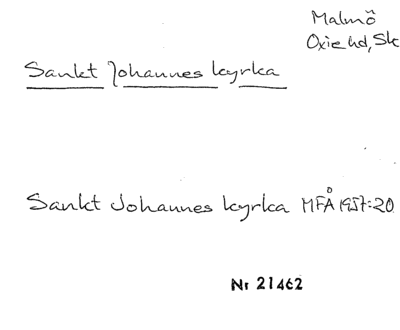 Malmö
Oxie hd, Sk
Sankt Johannes kyrka
Sankt Johannes kyrka MFÅ 1957:20
Nr 21462